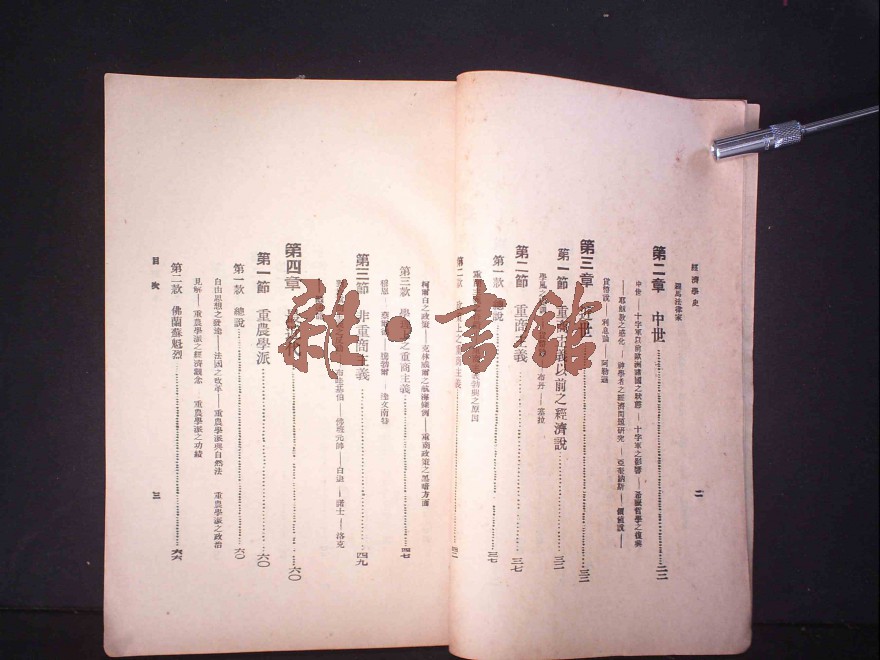 經濟學史
羅馬法律家
第二章 中世……二二
中世——十字軍以前歐洲諸國之狀態——十字軍之影響——希臘哲學之復興
——耶穌教之感化——神學者之經濟問題研究——亞奎納斯——價值說——
貨幣說——利息論——阿勒遜
第三章 近世……三二
第一節 重商主義以前之經濟說……三二
布丹——塞拉
第二節 重商主義……三七
第一款 總說……三七
勃興之原因
第二款 上之重商主義
二
柯爾白之政策——克林威爾之航海條例——重商政策之黑暗方面
第三款 之重商主義……四七
第三節 非重商主義……四九
布阿基伯——佛班元帥——白 ——諾士——洛克
第四章……六〇
第一節 重農學派……六〇
第一款 總說……六〇
自由思想之發達——法國之改革——重農學派與自然法 重農學派之政治
見解——重農學派之經濟觀念 重農學派之功績
第二款 佛蘭蘇魁烈……六六
目次
三
雜·書館